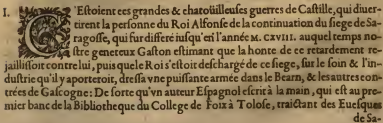 I. C'Estoient ces grandes & chatoüilleuses guerres de Castille, qui diuer-
tirent la personne du Roi Alfonse de la continuation du siege de Sa-
ragosse, qui fur differé iusqu'en l'année M. CXVIII. auquel temps no-
stre genereux Gaston estimant que la honte de ce retardement re-
jallissoit contre lui, puis quele Roi s'estoit deschargé de ce siege, sur le soin & l'in-
dustrie qu'il y aporteroit, dressa vne puissante armée dans le Bearn, & les autres con-
trées de Gascogne: De sorte qu'vn auteur Espagnol escrit à la main, qui est au pre-
mier banc de la Bibliotheque du College de Foix à Tolose, traictant des Euesques
de Sa-